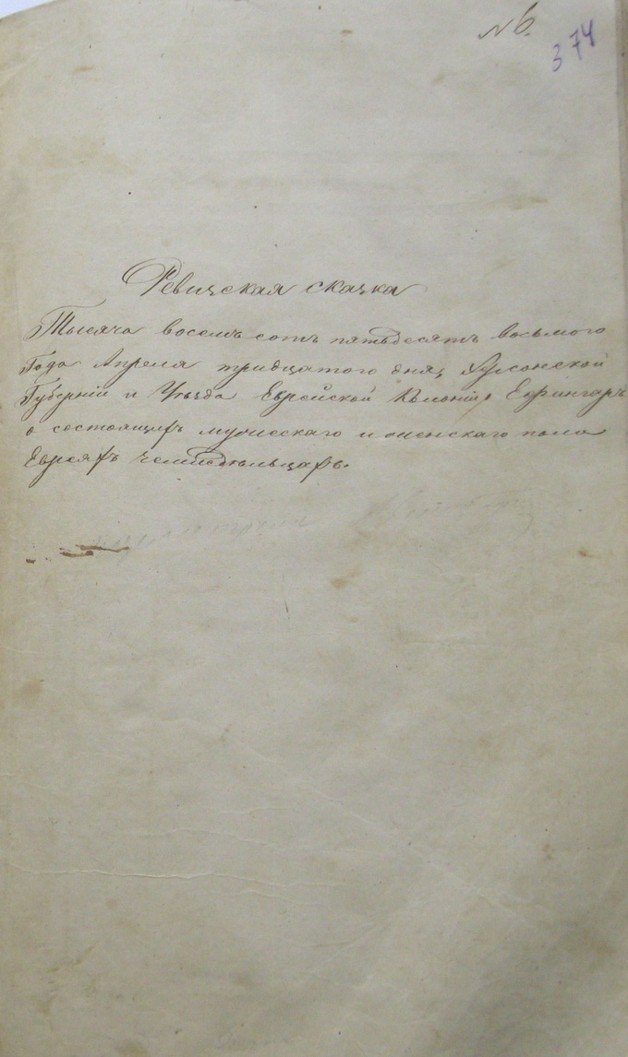 № 6.
374
Ревизская сказка
Тысяча восемь сотъ пятьдесятъ восьмого
Года Апреля тридцатого дня, Херсонской
Губерніи и Уѣзда Еврейской Колоніи Ефингаръ
о состоящихъ мужескаго и женскаго пола
Евреяхъ земледѣльцахъ.